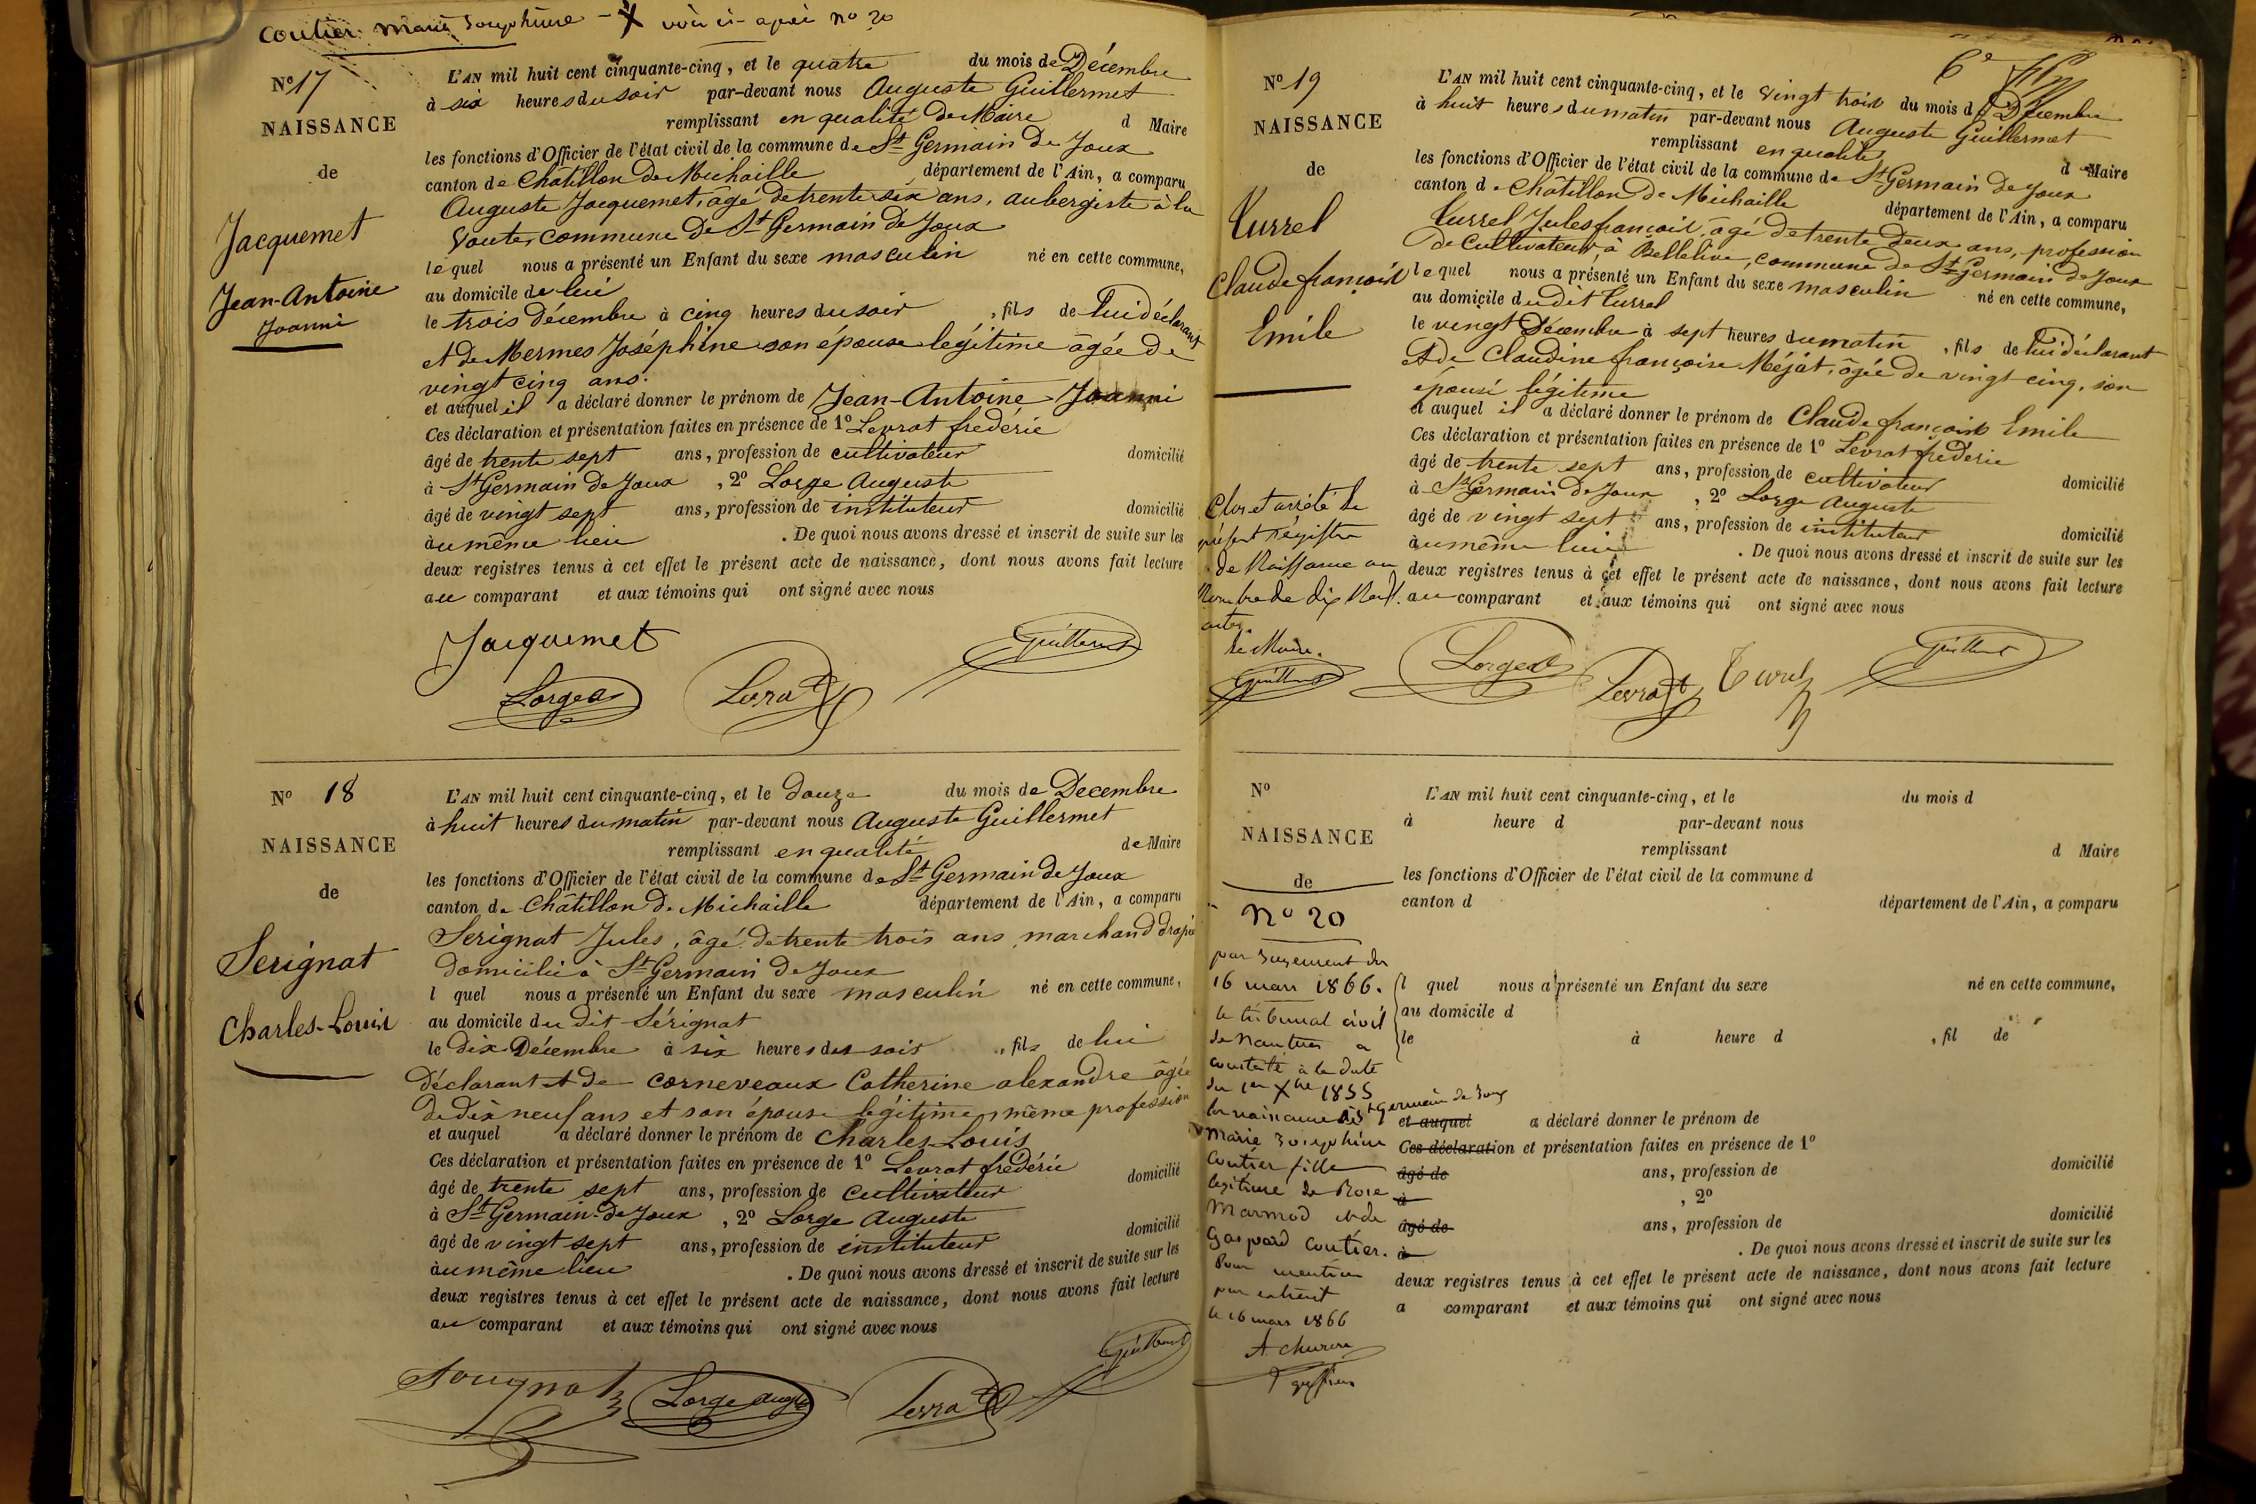 Coutier Marie Josephine - X voir ci-après n° 20
N° 17
NAISSANCE
de
Jacquemet
Jean-Antoine
Joanni
L'AN mil huit cent cinquante-cinq, et le quatre du mois de Décembre
à six heures du soir par-devant nous Auguste Guillermet
remplissant en qualité de Maire d Maire
les fonctions d'Officier de l'état civil de la commune de St Germain de Joux
canton de Châtillon de Michaille département de l'Ain, a comparu
Auguste Jacquemet, âgé de trente six ans, aubergiste à la
Voute, commune de St Germain de Joux
lequel nous a présenté un Enfant du sexe masculin né en cette commune,
au domicile de lui
le trois décembre à cinq heures du soir, fils de lui déclarant
et de Mermes Joséphine son épouse légitime âgée de
vingt cinq ans.
et auquel il a déclaré donner le prénom de Jean-Antoine Joanni
Ces déclaration et présentation faites en présence de 1° Levrat frédéric
âgé de trente sept ans, profession de cultivateur domicilié
à St Germain de Joux, 2° Lorge Auguste
âgé de vingt sept ans, profession de instituteur domicilié
au même lieu. De quoi nous avons dressé et inscrit de suite sur les
deux registres tenus à cet effet le présent acte de naissance, dont nous avons fait lecture
au comparant et aux témoins qui ont signé avec nous
Jacquemet
Guillermet
Lorge a
Levrat
N° 18
NAISSANCE
de
Serignat
Charles-Louis
L'AN mil huit cent cinquante-cinq, et le douze du mois de Decembre
à huit heures du matin par-devant nous Auguste Guillermet
remplissant en qualité de Maire
les fonctions d'Officier de l'état civil de la commune de St Germain de Joux
canton de Châtillon de Michaille département de l'Ain, a comparu
Serignat Jules, âgé de trente trois ans marchand drapier
domicilié à St Germain de Joux
l quel nous a présenté un Enfant du sexe masculin né en cette commune,
au domicile du dit Sérignat
le dix Décembre à six heures des soir, fils de lui
déclarant et de Corneveaux Catherine alexandre âgée
de dix neuf ans et son épouse légitime, même profession
et auquel a déclaré donner le prénom de Charles Louis
Ces déclaration et présentation faites en présence de 1° Levrat frédéric
âgé de trente sept ans, profession de cultivateur domicilié
à St Germain de Joux, 2° Lorge Auguste
âgé de vingt sept ans, profession de instituteur domicilié
au même lieu. De quoi nous avons dressé et inscrit de suite sur les
deux registres tenus à cet effet le présent acte de naissance, dont nous avons fait lecture
au comparant et aux témoins qui ont signé avec nous
Guillermet
Lorge Augte
Levrat
N° 19
NAISSANCE
de
Turrel
Claude françois
Emile
L'AN mil huit cent cinquante-cinq, et le vingt trois du mois d Décembre
à huit heures du matin par-devant nous Auguste Guillermet
remplissant en qualité d Maire
les fonctions d'Officier de l'état civil de la commune de St Germain de Joux
canton de Châtillon de Michaille département de l'Ain, a comparu
Turrel Jules françois, âgé de trente deux ans, profession
de Cultivateur, à Bellelive, commune de St Germain de Joux
lequel nous a présenté un Enfant du sexe masculin né en cette commune,
au domicile du dit Turrel
le vingt Décembre à sept heures du matin, fils de lui déclarant
et de Claudine françoise Méjat, âgée de vingt cinq, son
épouse légitime
et auquel il a déclaré donner le prénom de Claude françois Emile
Ces déclaration et présentation faites en présence de 1° Levrat frédéric
âgé de trente sept ans, profession de cultivateur domicilié
à St Germain de Joux, 2° Lorge Auguste
âgé de vingt sept ans, profession de instituteur domicilié
au même lieu. De quoi nous avons dressé et inscrit de suite sur les
deux registres tenus à cet effet le présent acte de naissance, dont nous avons fait lecture
au comparant et aux témoins qui ont signé avec nous
Clos et arrêté le
présent régistre
de Naissance au
Nombre de dix Neuf
actes.
Le Maire.
Guillermet
Lorge a
Levrat
Turel
Guillermet
N°
NAISSANCE
de
N° 20
par jugement du
16 mars 1866.
le tribunal civil
de Nantua a
constaté à la date
du 1er Xbre 1855
la naissance à St Germain de Joux
Marie Josephine
Coutier fille
legitime de Rose
Marmod et de
Gaspard Coutier.
Pour mention
par extrait
le 16 mars 1866
greffier
L'AN mil huit cent cinquante-cinq, et le du mois d
à heure d par-devant nous
remplissant d Maire
les fonctions d'Officier de l'état civil de la commune d
canton d département de l'Ain, a comparu
l quel nous a présenté un Enfant du sexe né en cette commune,
au domicile d
le à heure d, fil de
et auquel a déclaré donner le prénom de
Ces déclaration et présentation faites en présence de 1°
âgé de ans, profession de domicilié
à, 2°
âgé de ans, profession de domicilié
à. De quoi nous avons dressé et inscrit de suite sur les
deux registres tenus à cet effet le présent acte de naissance, dont nous avons fait lecture
a comparant et aux témoins qui ont signé avec nous